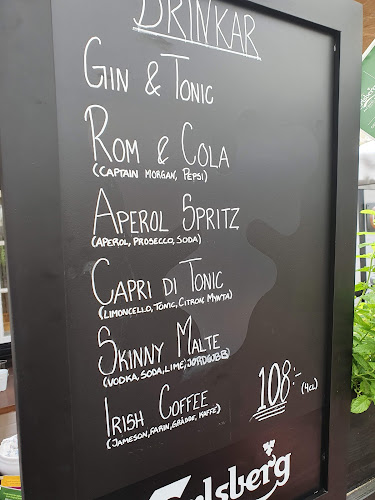 DRINKAR
GIN & TONIC
ROM & COLA
(CAPTAIN MORGAN, PEPSI)
APEROL SPRITZ
(APEROL, PROSECCO, SODA)
CAPRI DI TONIC
(LIMONCELLO, TONIC, CITRON, MYNTA)
SKINNY MALTE
(VODKA, SODA, LIME, JORDGUBB)
IRISH COFFEE
(JAMESON, FARIN, GRÄDDE, KAFFE)
108:- (4CL)
Carlsberg